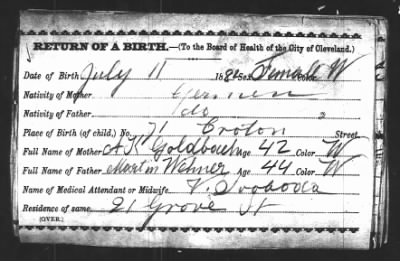 RETURN OF A BIRTH.—(To the Board of Health of the City of Cleveland.)
Date of Birth July 11 188 Sex Female Color W
Nativity of Mother German
Nativity of Father do
Place of Birth (of child,) No. 71 Croton Street.
Full Name of Mother A K Age 42 Color W
Full Name of Father Martin Wehner Age 44 Color W
Name of Medical Attendant or Midwife. V. Svoboda
Residence of same. 21 Grove St
(OVER.)